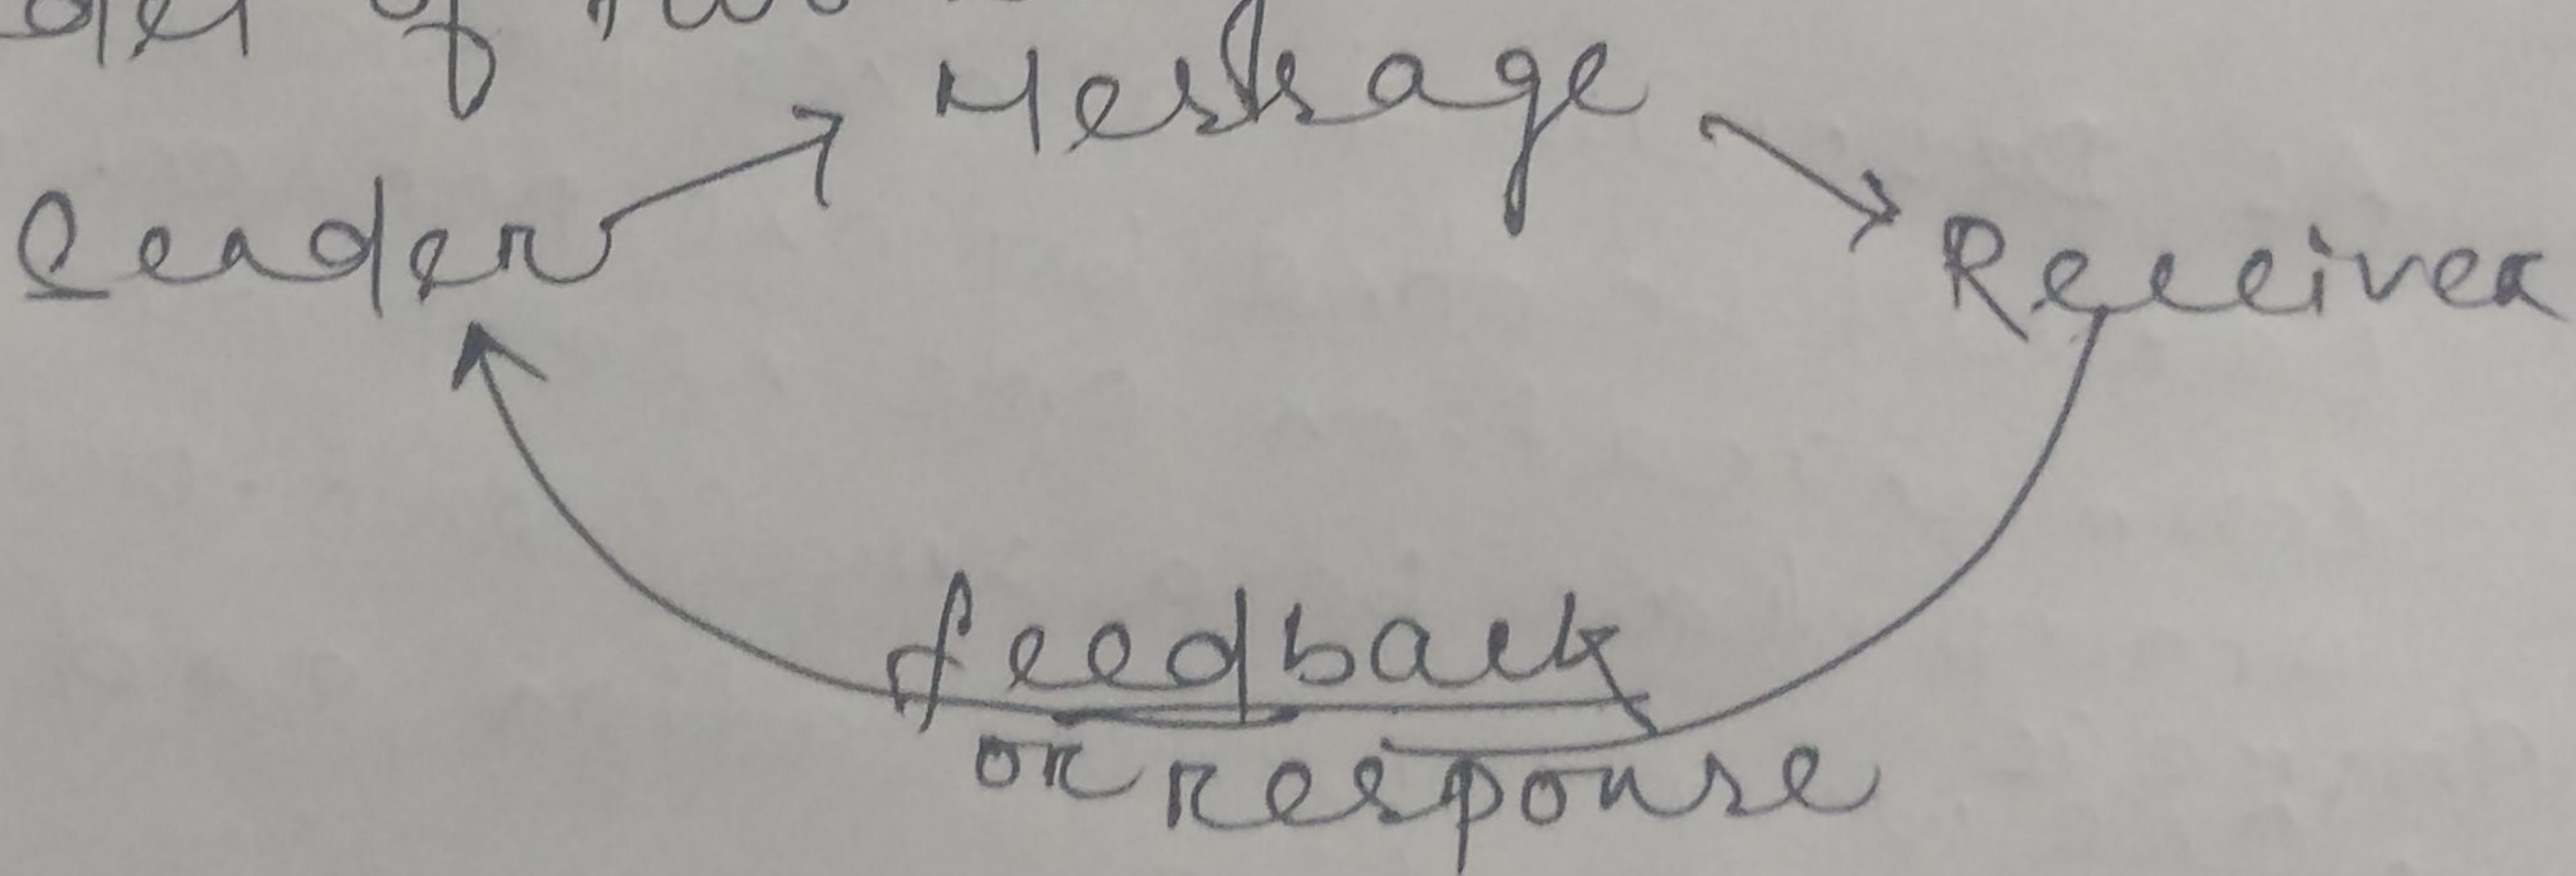 of
Message
Sender
Receiver
feedback
or response